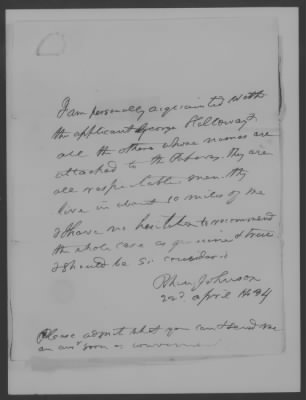 I am personally acquainted with
the applicant George Holloway &
all the others whose names are
attached to the above. they are
all respectable men. they
live in about 10 miles of me
I have no hesitation to recommend
the whole case as genuine & true
& should be so considered
Johnson
22d. april 1884
Please admit what you can & send me
an ans soon as convenient